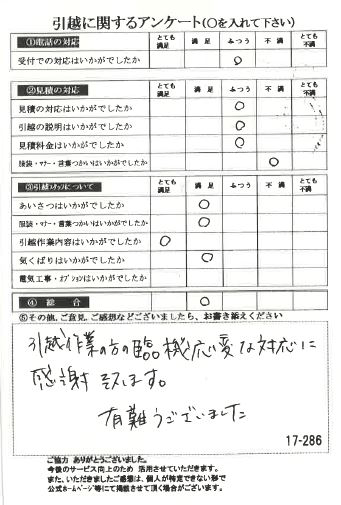 引越に関するアンケート(〇を入れて下さい)
①電話の対応 とても満足 満足 ふつう 不満 とても不満
受付での対応はいかがでしたか 〇
②見積の対応 とても満足 満足 ふつう 不満 とても不満
見積の対応はいかがでしたか 〇
引越の説明はいかがでしたか 〇
見積料金はいかがでしたか 〇
服装・マナー・言葉づかいはいかがでしたか 〇
③引越スタッフについて とても満足 満足 ふつう 不満 とても不満
あいさつはいかがでしたか 〇
服装・マナー・言葉づかいはいかがでしたか 〇
引越作業内容はいかがでしたか 〇
気くばりはいかがでしたか 〇
電気工事・オプションはいかがでしたか
④ 総合 〇
⑤その他、ご意見、ご感想などございましたら、お書き添えください
引越作業の方の臨機応変な対応に
感謝致します。
有難うございました
17-286
ご協力 ありがとうございました。
今後のサービス向上のため 活用させていただきます。
また、いただきましたご感想は、個人が特定できない形で
公式ホームページ等にて掲載させて頂く場合がございます。